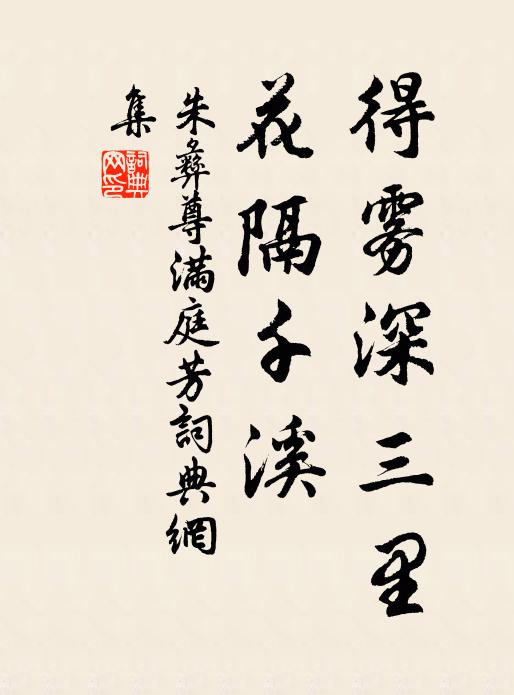 得雾深三里
花隔千溪
朱彝尊滿庭芳詞典網
集
詞典
网印